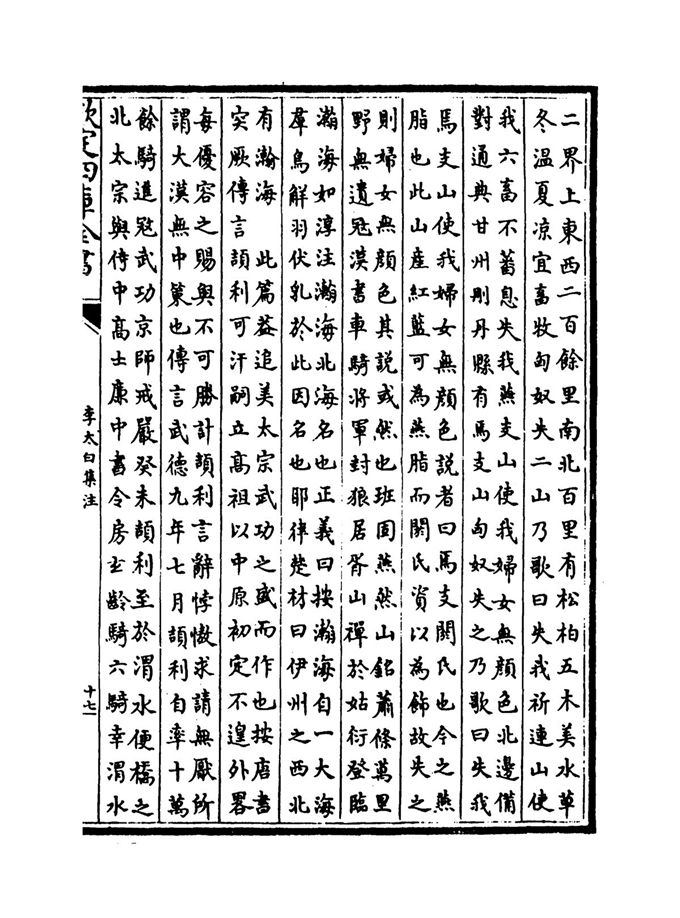 二界上東西二百餘里南北百里有松柏五木美水草
冬温夏凉宜畜牧匈奴失二山乃歌曰失我祈連山使
我六畜不蕃息失我燕支山使我婦女無顔色北邊備
對通典甘州刪丹縣有馬支山匈奴失之乃歌曰失我
馬支山使我婦女無顔色説者曰馬支閼氏也今之燕
脂也此山産紅藍可為燕脂而閼氏資以為飾故失之
則婦女無顔色其説或然也班固燕然山銘蕭條萬里
野無遺冦漢書車騎將軍封狼居胥山禪於姑衍登臨
瀚海如淳注瀚海北海名也正義曰按瀚海自一大海
羣鳥解羽伏乳於此因名也耶律楚材曰伊州之西北
有瀚海　此篇葢追美太宗武功之盛而作也按唐書
突厥傳言頡利可汗嗣立髙祖以中原初定不遑外畧
每優容之賜與不可勝計頡利言辭悖慠求請無厭所
謂大漠無中策也傳言武德九年七月頡利自率十萬
餘騎進冦武功京師戒嚴癸未頡利至於渭水便橋之
北太宗與侍中髙士廉中書令房玄齡騎六騎幸渭水
欽定四庫全書
李太白集注
十七